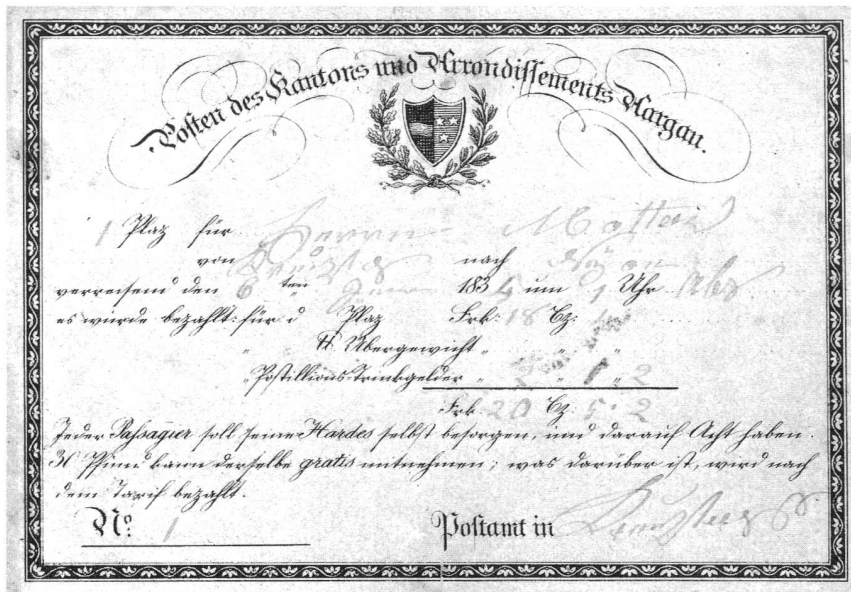 Posten des Kantons und Arrondissements Aargau.
1 Plaz für Herrn Mattei
von nach
verreisend den 6 ten 1834 um 1 Uhr
es wurde bezahlt: für d Plaz Frk: 18 Bz:
" " ℔ Übergewicht " " "
" Postillions-Trinkgelder " 2 " 5 " 2
Frk 20 Bz 5 " 2
Jeder Passagier soll seine Hardes selbst besorgen, und darauf Acht haben.
30 Pfund kann derselbe gratis mitnehmen; was darüber ist, wird nach
dem Tarif bezahlt.
No. 1 Postamt in